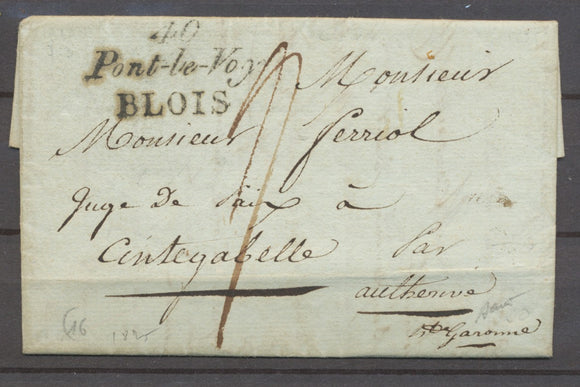 40
Pont-le-Voy
BLOIS
Monsieur
Monsieur Perriol
Juge De Paix à
Cintegabelle Par
autherive
hte Garonne
16